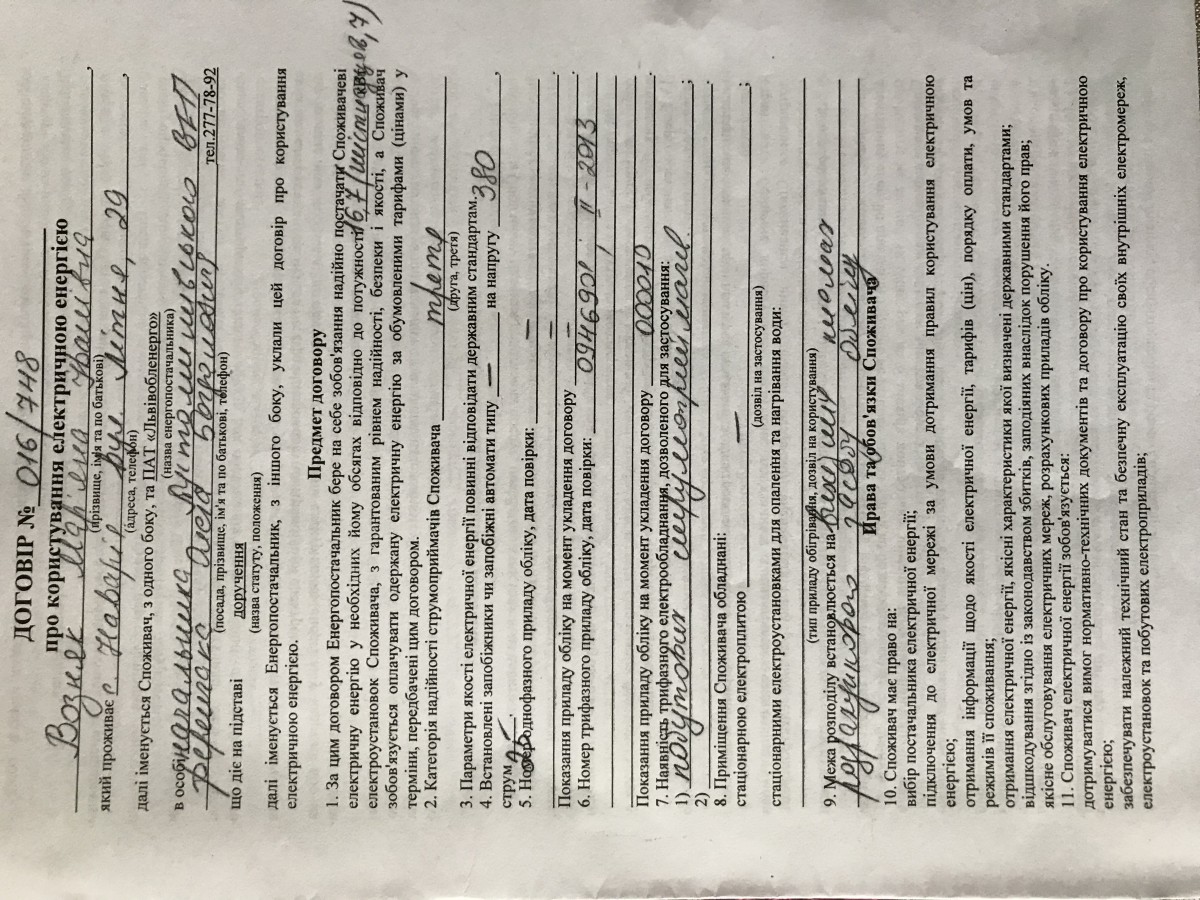 ДОГОВІР № 016/748
про користування електричною енергією
Возняк Мар'яна Іванівна,
(прізвище, ім'я та по батькові)
який проживає с. Наварія вул Літня, 29,
(адреса, телефон)
далі іменується Споживач, з одного боку, та ПАТ «Львівобленерго»
(назва енергопостачальника)
в особі начальника Пустомитівського ВЕП
тел.277-78-92
(посада, прізвище, ім'я та по батькові, телефон)
що діє на підставі доручення
(назва статуту, положення)
далі іменується Енергопостачальник, з іншого боку, уклали цей договір про користування
електричною енергією.
Предмет договору
1. За цим договором Енергопостачальник бере на себе зобов'язання надійно постачати Споживачеві
електричну енергію у необхідних йому обсягах відповідно до потужності 16,7
електроустановок Споживача, з гарантованим рівнем надійності, безпеки і якості, а Споживач
зобов'язується оплачувати одержану електричну енергію за обумовленими тарифами (цінами) у
терміни, передбачені цим договором.
2. Категорія надійності струмоприймачів Споживача третя
(друга, третя)
3. Параметри якості електричної енергії повинні відповідати державним стандартам.
4. Встановлені запобіжники чи запобіжні автомати типу — на напругу 380,
струм 25.
5. Номер однофазного приладу обліку, дата повірки: —
Показання приладу обліку на момент укладення договору =.
6. Номер трифазного приладу обліку, дата повірки: 09469501, II - 2013
Показання приладу обліку на момент укладення договору 000010.
7. Наявність трифазного електрообладнання, дозволеного для застосування:
1) побутових струмоприймачів;
2)
8. Приміщення Споживача обладнані:
стаціонарною електроплитою —;
(дозвіл на застосування)
стаціонарними електроустановками для опалення та нагрівання води:
(тип приладу обігрівання, дозвіл на користування)
9. Межа розподілу встановлюється на
обліку
Права та обов'язки Споживача
10. Споживач має право на:
вибір постачальника електричної енергії;
підключення до електричної мережі за умови дотримання правил користування електричною
енергією;
отримання інформації щодо якості електричної енергії, тарифів (цін), порядку оплати, умов та
режимів її споживання;
отримання електричної енергії, якісні характеристики якої визначені державними стандартами;
відшкодування згідно із законодавством збитків, заподіяних внаслідок порушення його прав;
якісне обслуговування електричних мереж, розрахункових приладів обліку.
11. Споживач електричної енергії зобов'язується:
дотримуватися вимог нормативно-технічних документів та договору про користування електричною
енергією;
забезпечувати належний технічний стан та безпечну експлуатацію своїх внутрішніх електромереж,
електроустановок та побутових електроприладів;